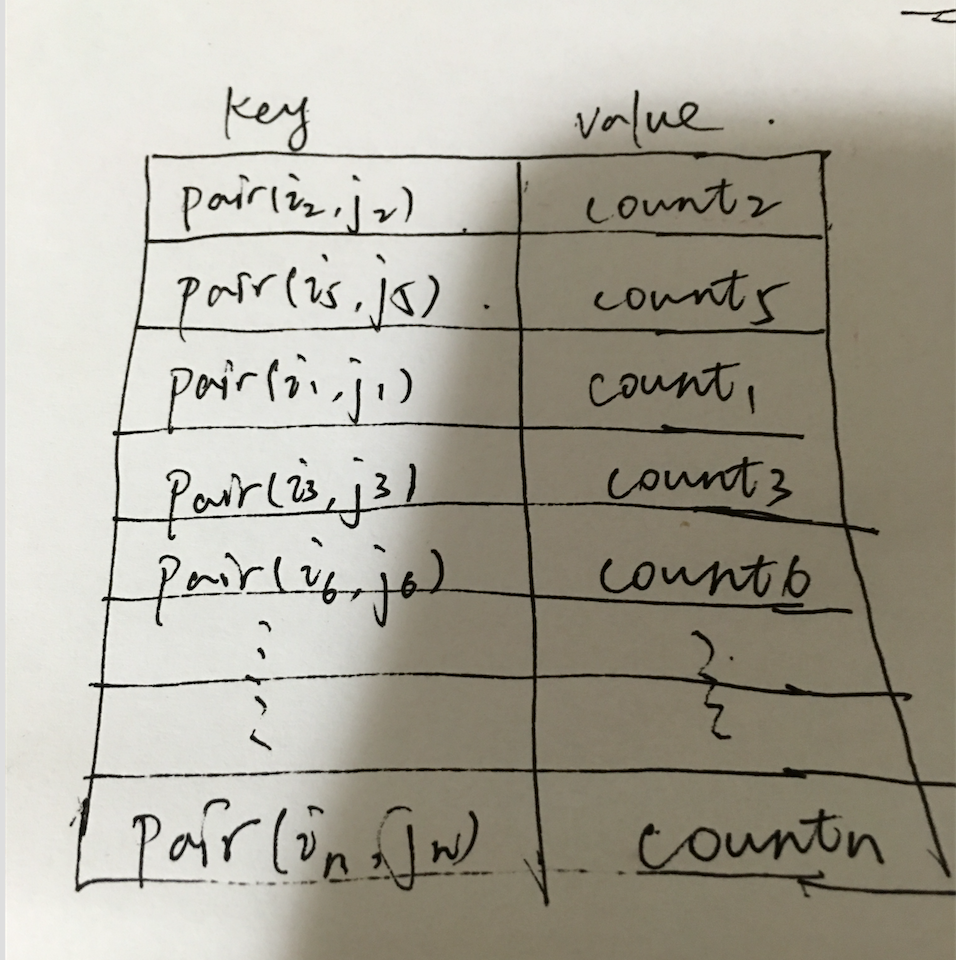 key value
pair(i2,j2) count2
pair(i5,j5) count5
pair(i1,j1) count1
pair(i3,j3) count3
pair(i6,j6) count6
⋮ ⋮
⋮ ⋮
pair(in,jn) countn